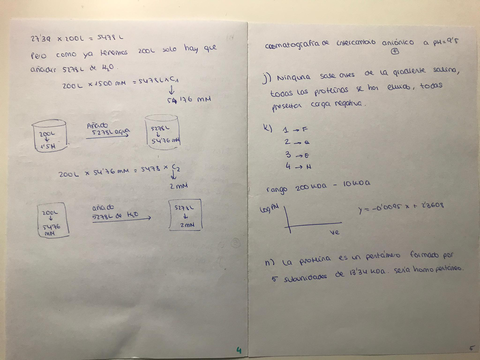 27'39 x 200L = 5478L
Pero como ya tenemos 200L solo hay que
añadir 5278L de H2O
200L x 1500 mM = 5478L x C1
54'76 mM
200L
1'5M
Añado
5278L agua
5278L
54'76mM
200L x 54'76 mM = 5478 x C2
2 mM
200L
54'76
mM
añado
5278L de H2O
5278L
2mM
4
cromatografía de intercambio aniónico a pH=9'5
+
j) Ninguna sale antes de la gradiente salino,
todas las proteínas se han eluido, todas
presentan carga negativa.
k) 1 → F
2 →
3 →
4 → H
rango 200 kDa - 10 kDa
log PM
y = -0'0095 x + 2'3603
ve
n) La proteína es un pentámero formado por
5 subunidades de kDa. sería homopentámero.
5